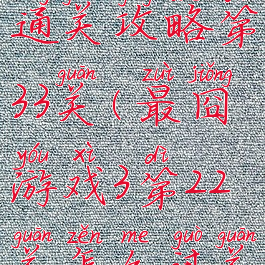 通关攻略第
guān zuì jiǒng
33关(最囧
yóu xì dì
游戏3第22
guān zěn me guò guān